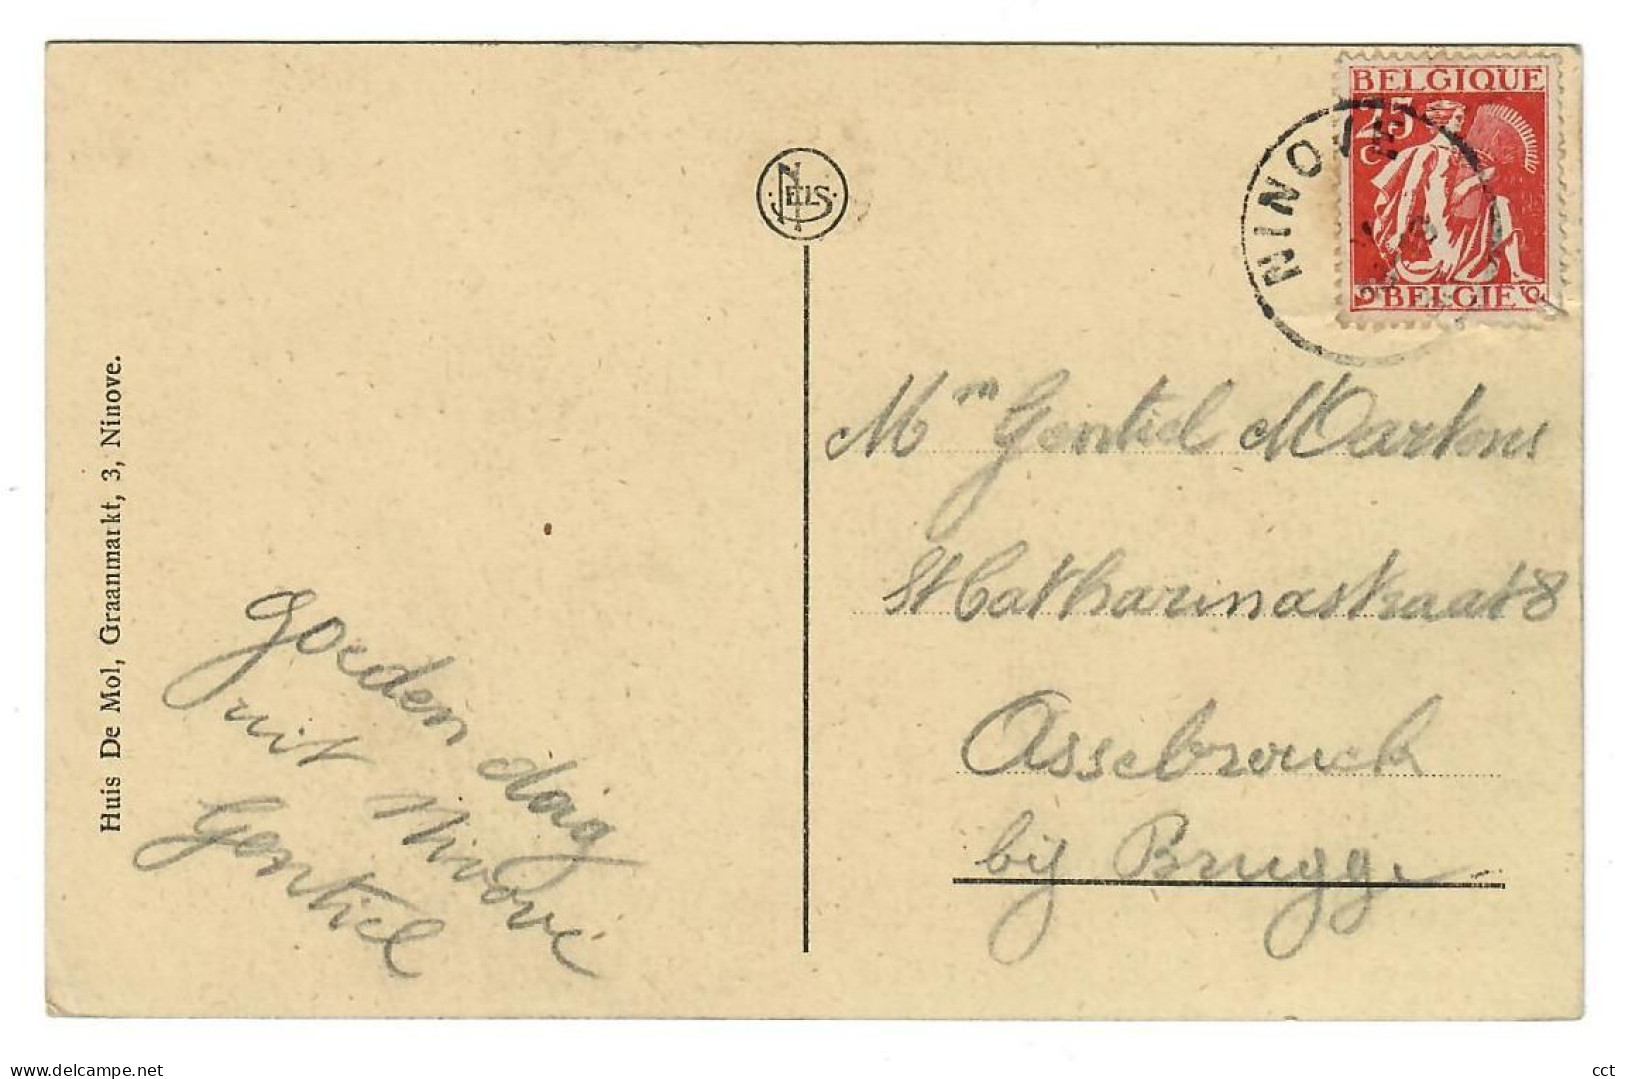 BELGIQUE
25
C
BELGIE
NINOVE
NELS
Huis De Mol, Graanmarkt, 3, Ninove.
Goeden dag
uit Ninove
Gentiel
Mr Gentiel Martens
St Catharinastraat 8
Assebrouck
bij Brugge
delcampe.net
cct